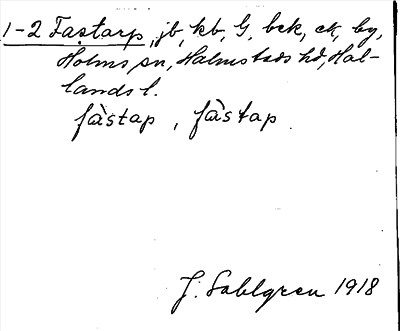 1-2 Fastarp, jb, kb, G, bck, ck, by,
Holms sn, Halmstads hd, Hal-
lands l.
fàstap, fàstap
J. Sahlgren 1918